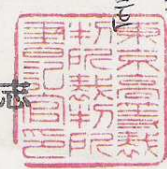 東京高等裁
判所裁判所
書記官印
志